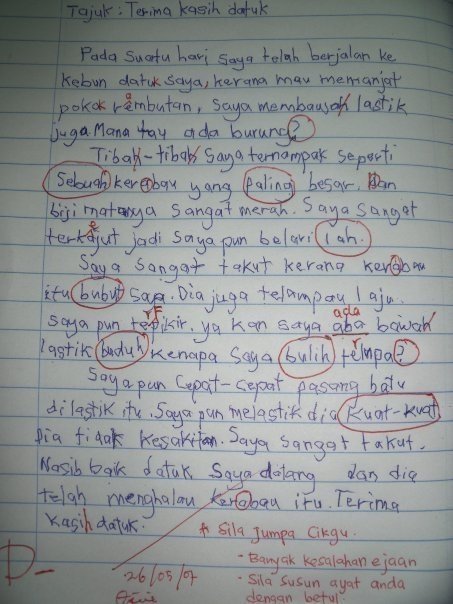 Tajuk : Terima kasih datuk
Pada suatu hari saya telah berjalan ke
kebun datuk saya, kerana mau memanjat
pokok rembutan, saya membawah lastik
juga. Mana tau ada burung?
Tibah-tibah saya ternampak seperti
sebuah kerabau yang paling besar. Dan
biji matanya sangat merah. Saya sangat
terkajut jadi saya pun belari lah.
Saya sangat takut kerana kerabau
itu bubut saya. Dia juga telampau laju.
ada
saya pun tepikir, ya kan saya aba bawah
lastik buduh kenapa saya bulih telupa?
Saya pun cepat-cepat pasang batu
dilastik itu. Saya pun melastik dia kuat-kuat
Dia tidak kesakitan. Saya sangat takut.
Nasib baik datuk saya datang dan dia
telah menghalau kerabau itu. Terima
kasih datuk.
* Sila jumpa Cikgu.
- Banyak kesalahan ejaan
- Sila susun ayat anda
dengan betul.
D-
26/05/07